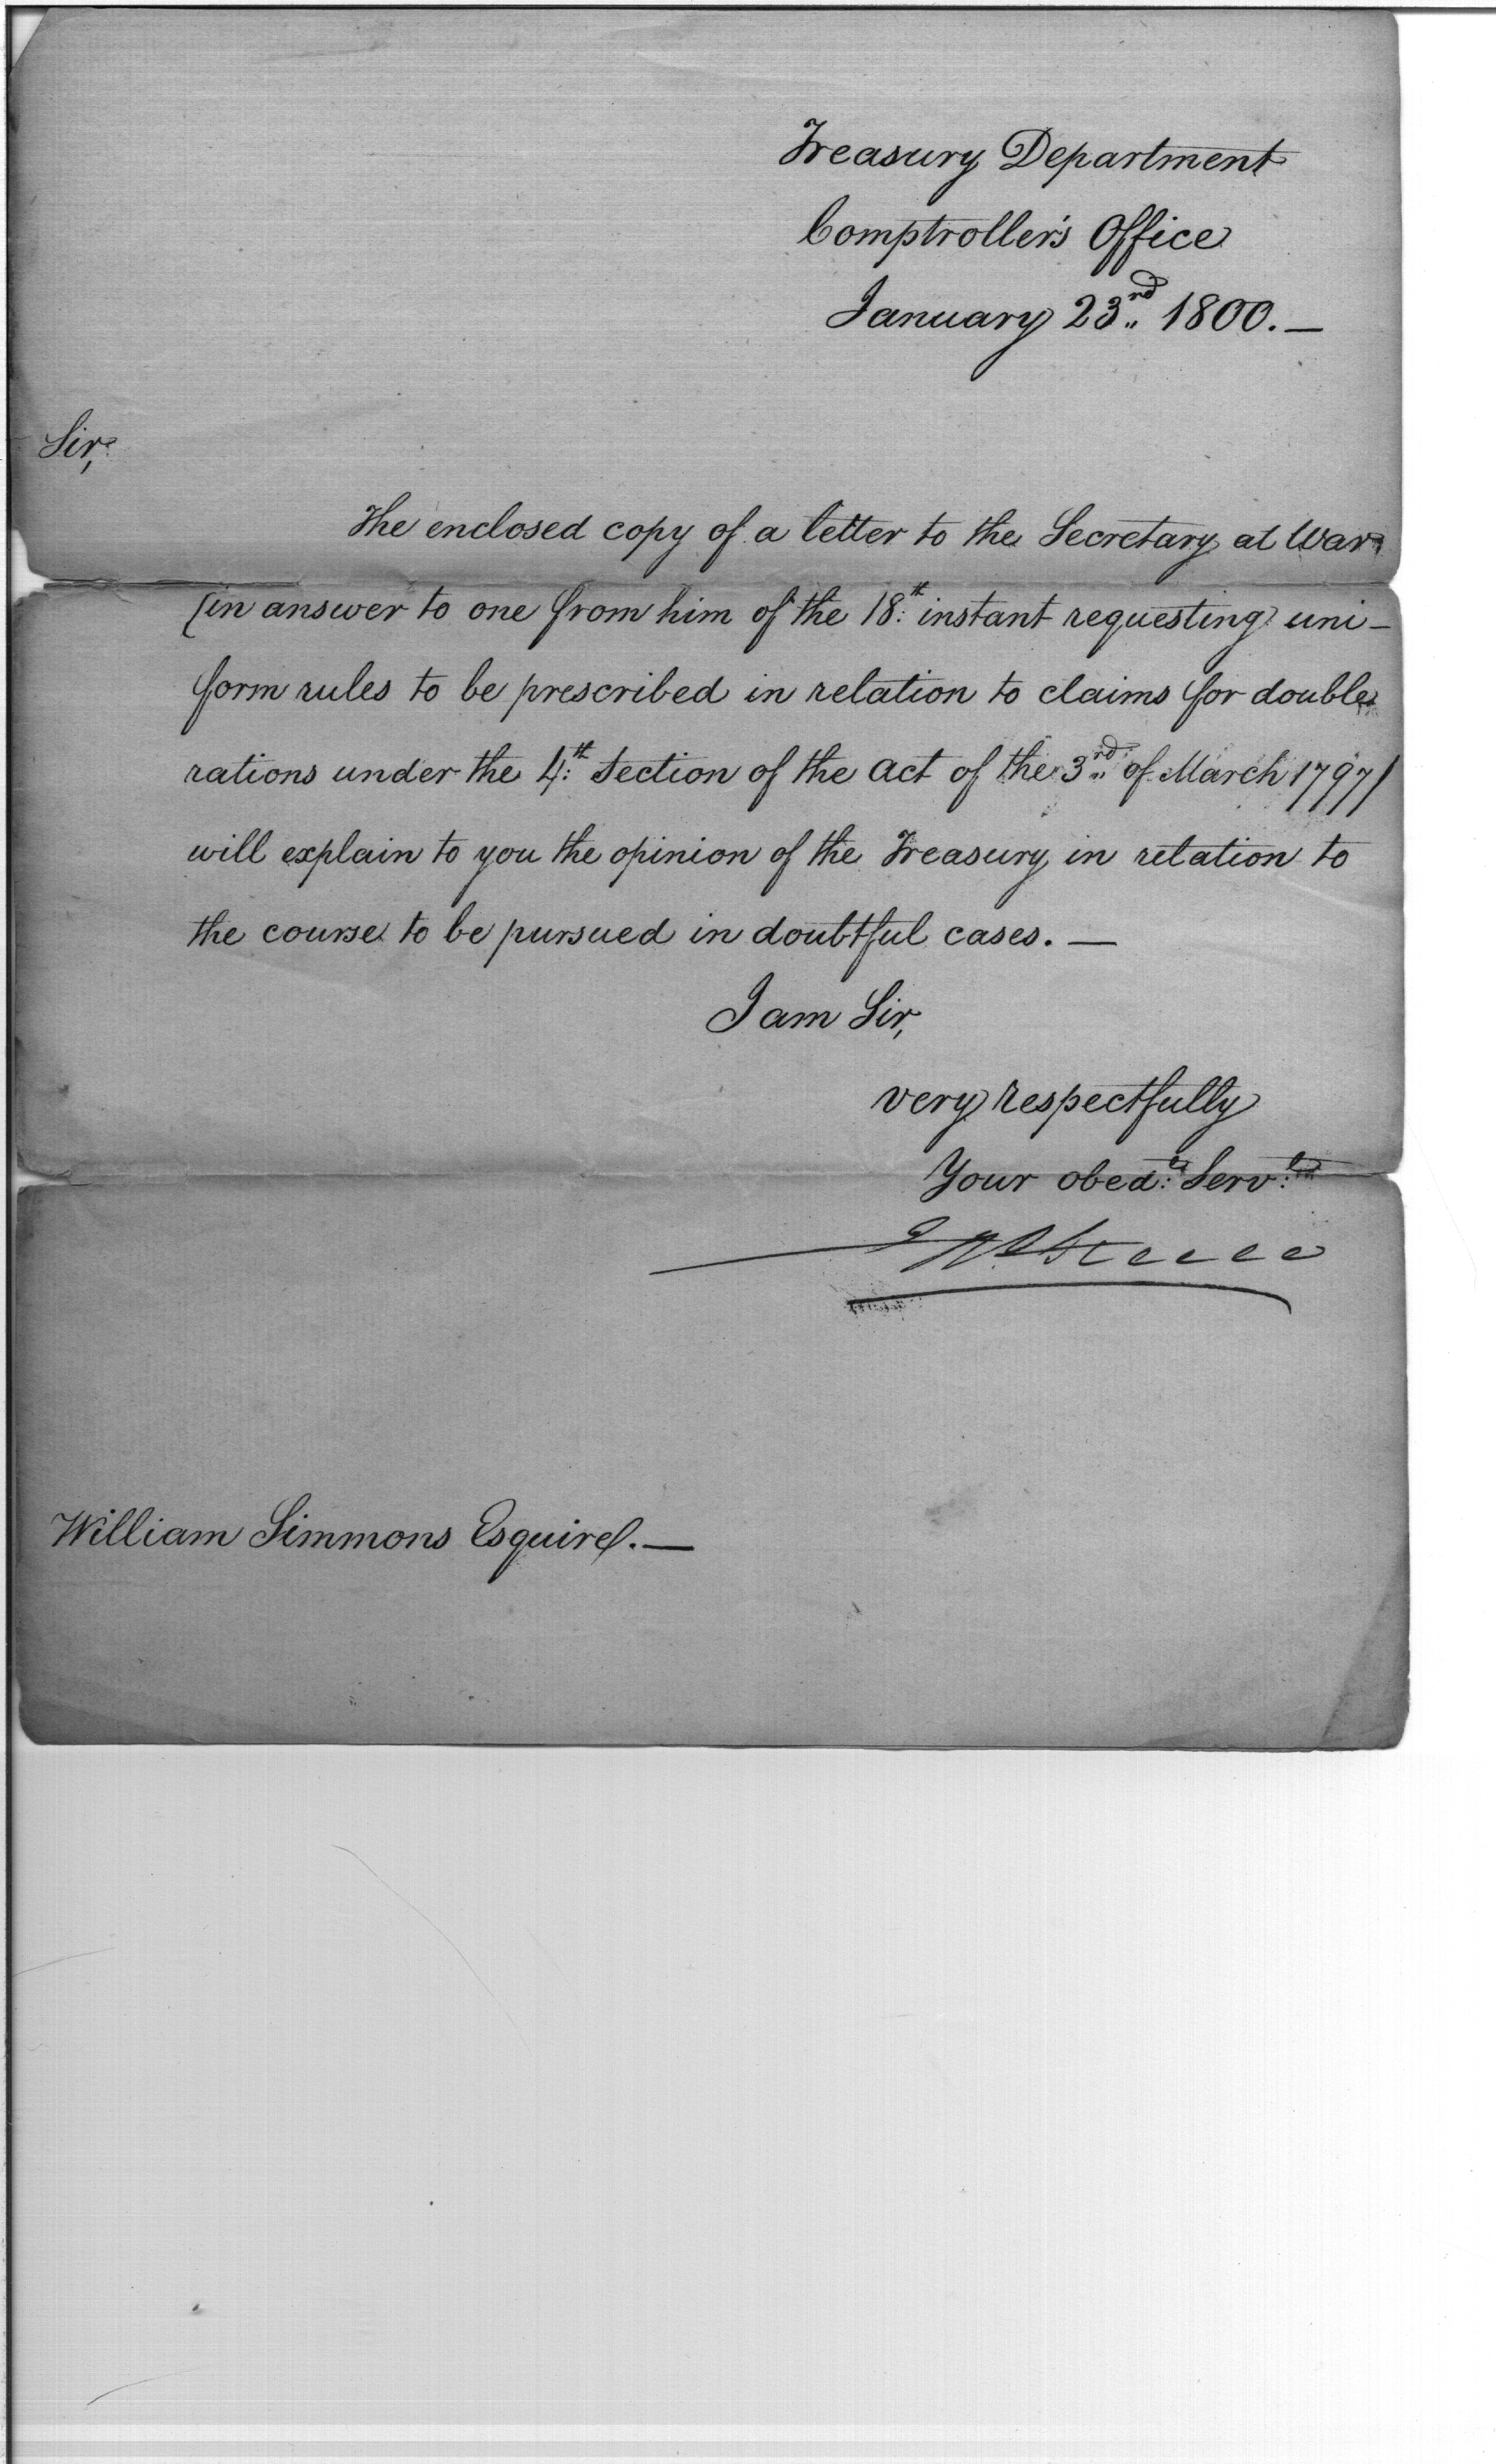 Treasury Department
Comptroller's Office
January 23rd 1800. —
Sir,
The enclosed copy of a letter to the Secretary at War
(in answer to one from him of the 18th instant requesting uni-
form rules to be prescribed in relation to claims for double
rations under the 4th Section of the Act of the 3rd of March 1797)
will explain to you the opinion of the Treasury in relation to
the course to be pursued in doubtful cases. —
I am Sir,
very respectfully
Your obedt Servt
Jno Steele
William Simmons Esquire. —